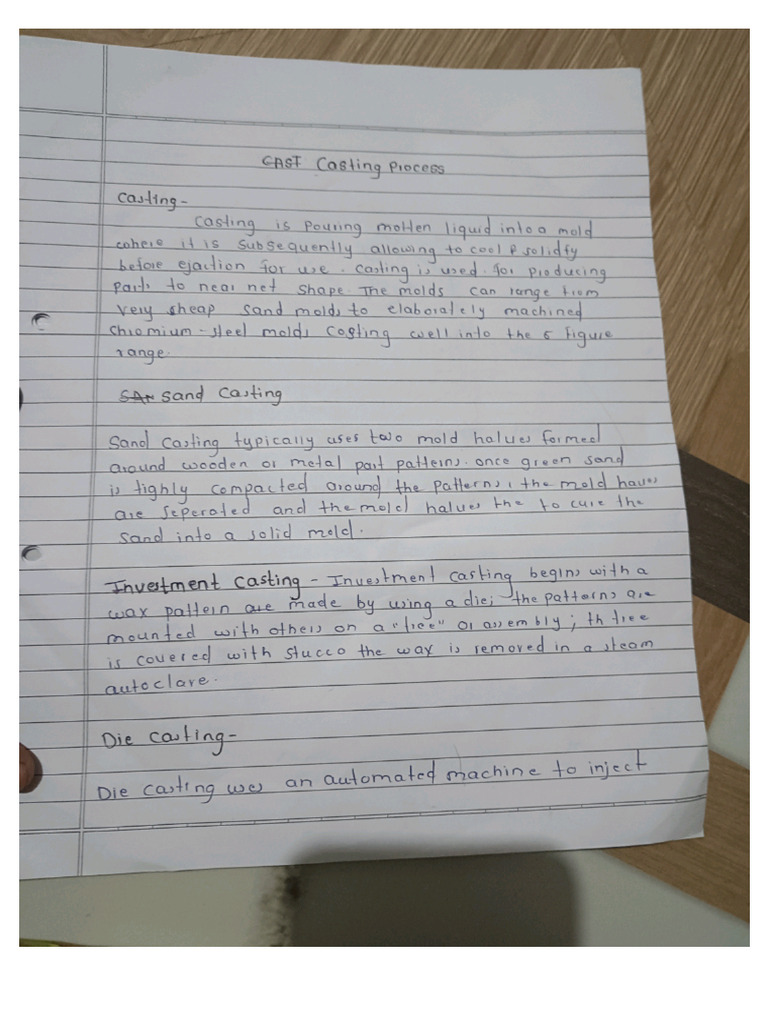 CAST Casting Process
Casting -
Casting is pouring molten liquid into a mold
where it is subsequently allowing to cool & solidfy
before ejaction for use. casting is used for producing
parts to near net shape. The molds can range from
very sheap sand molds to elaborately machined
chromium-steel molds costing well into the 5 figure
range.
SAN sand Casting
Sand casting typically uses two mold halves formed
around wooden or metal part patterns. once green sand
is tighly compacted around the patterns, the mold haves
are seperated and the mold halves the to cure the
sand into a solid mold.
Investment casting - Investment casting begins with a
wax pattern are made by using a die; the patterns are
mounted with others on a "tree" or assembly; th tree
is covered with stucco the wax is removed in a steam
autoclave.
Die casting-
Die casting uses an automated machine to inject